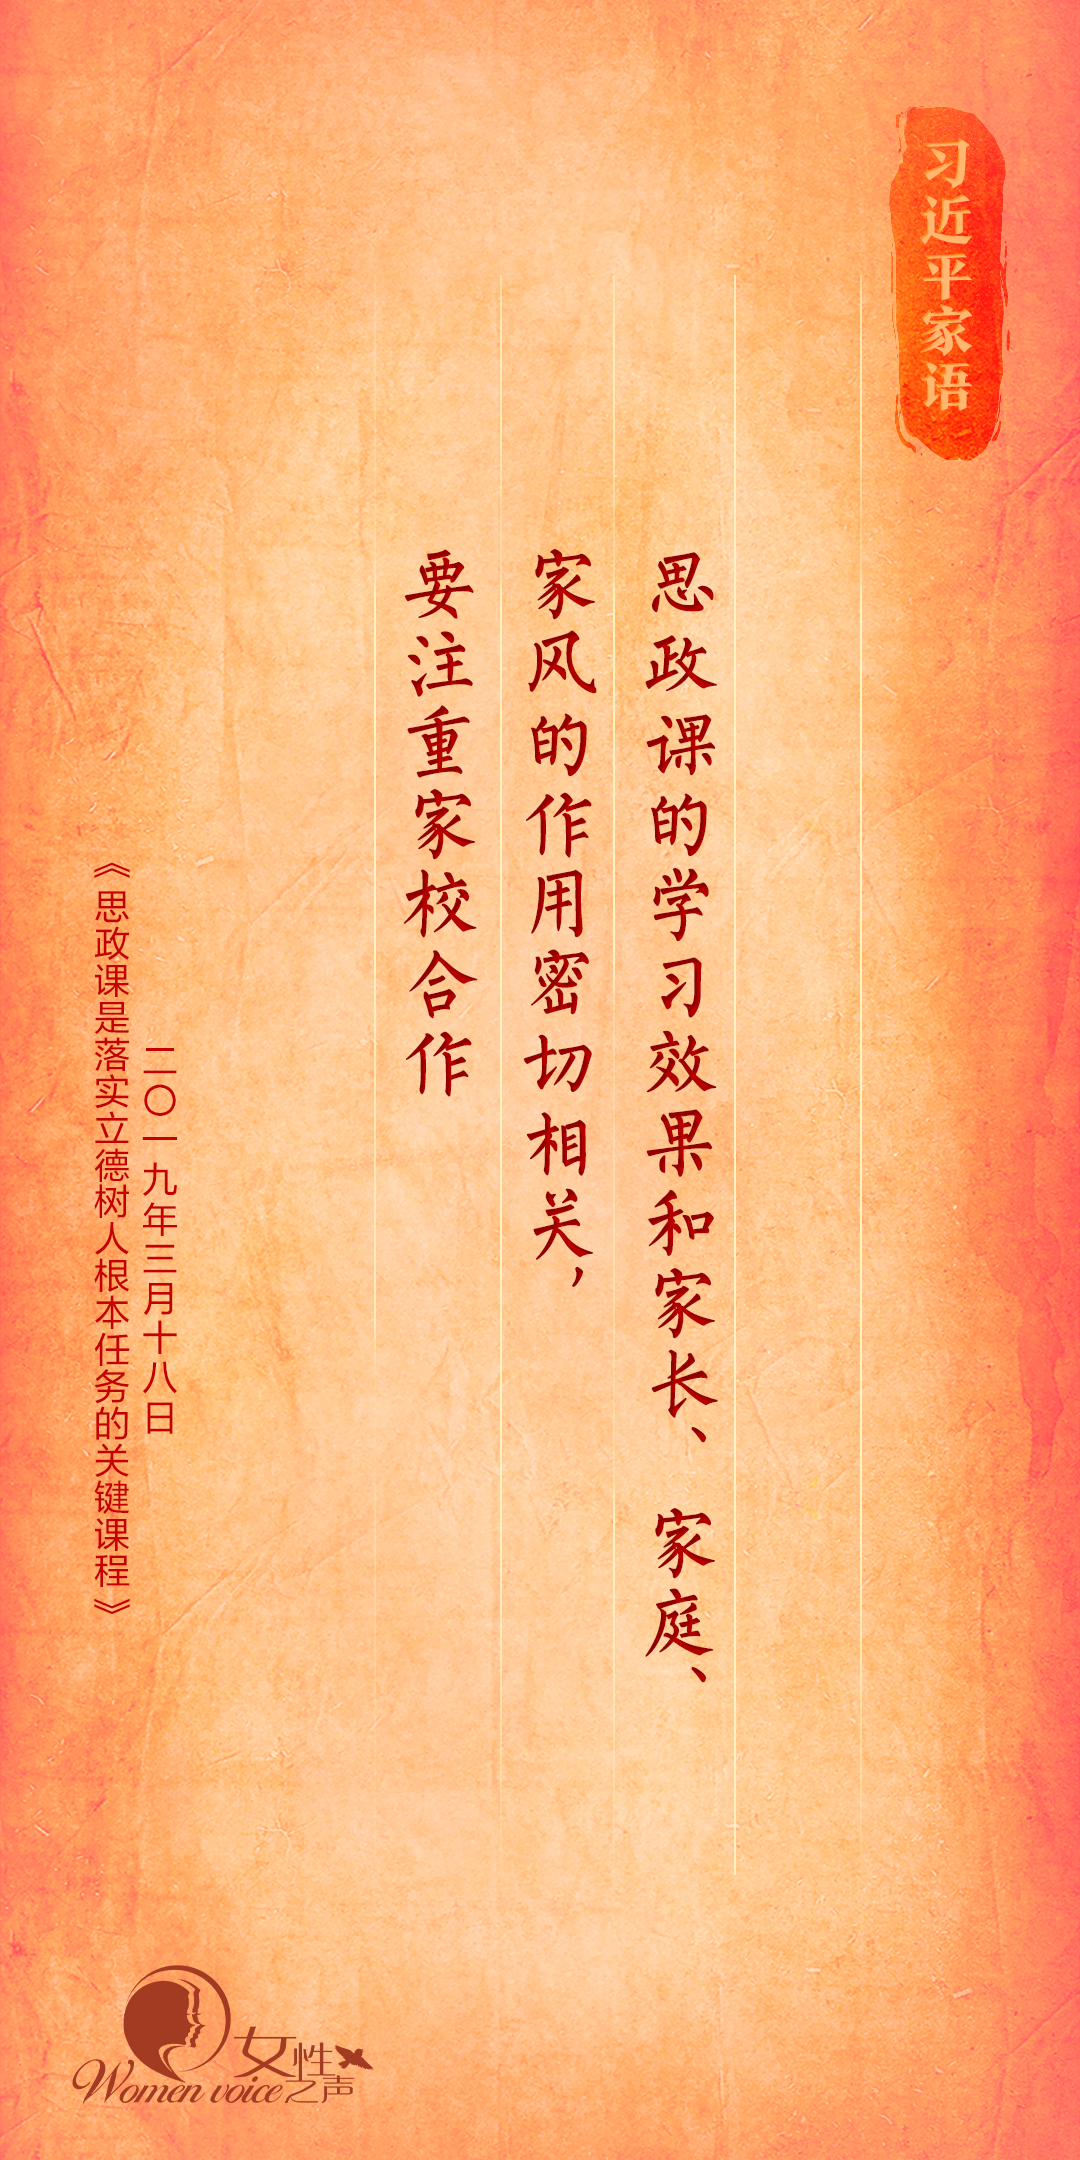 习近平家语
思政课的学习效果和家长、家庭、
家风的作用密切相关，
要注重家校合作
二〇一九年三月十八日
《思政课是落实立德树人根本任务的关键课程》
女性之声
Women voice